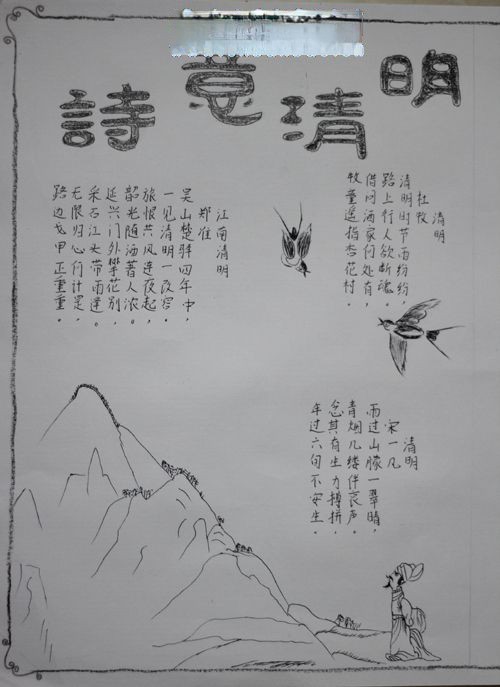 詩意清明
清明
杜牧
清明时节雨纷纷，
路上行人欲断魂。
借问酒家何处有，
牧童遥指杏花村。
江南清明
郑准
吴山楚驿四年中，
一见清明一改容。
旅恨共风连夜起，
韶光随酒著人浓。
延兴门外攀花别，
采石江头带雨逢。
无限归心何计是，
路边戈甲正重重。
清明
宋一凡
雨过山朦一翠晴，
青烟几缕伴哀声。
忿其有生力搏拼，
年过六旬不安生。